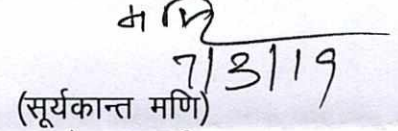 मणि
7/3/19
(सूर्यकान्त मणि)